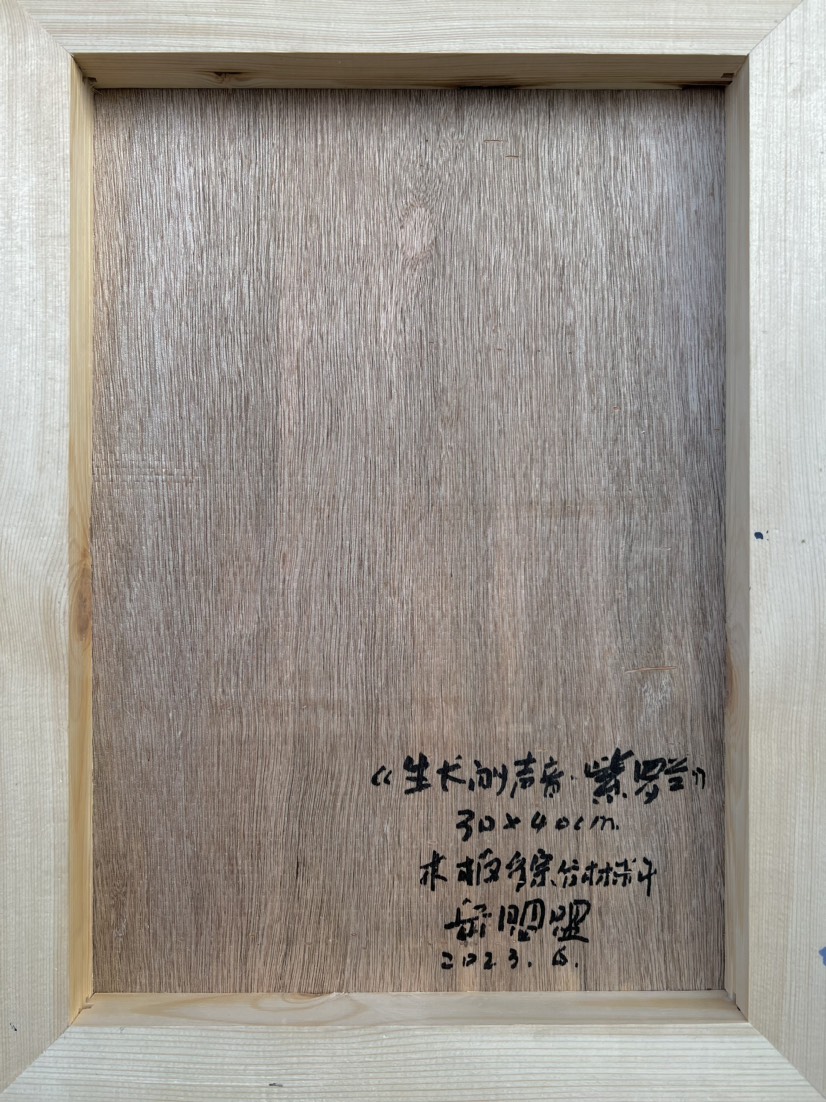 《生长的声音·紫罗兰》
30×40cm.
木板综合材料
岳盟盟
2023.6.